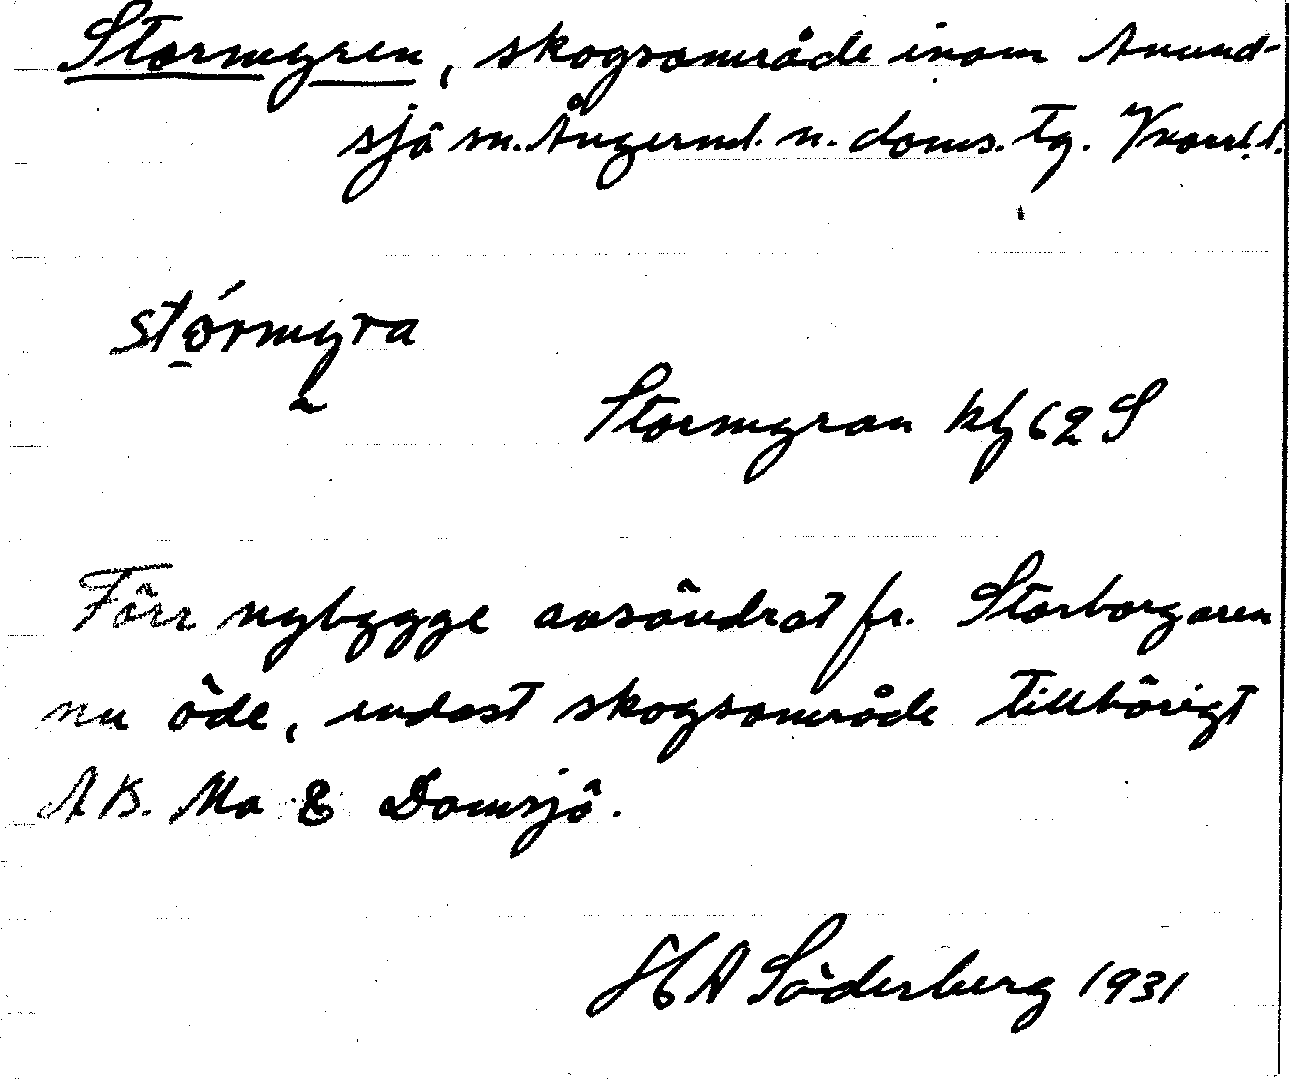 Stormyren, skogsområde inom Anund-
sjö sn. Ångerml. n. doms. tg. Vnorrl. l.
stórmyra
Stormyran kbg 62 S
Förr nybygge avsöndrat fr. Storborgaren
nu öde, endast skogsområde tillhörigt
AB. Mo & Domsjö.
HA Söderberg 1931